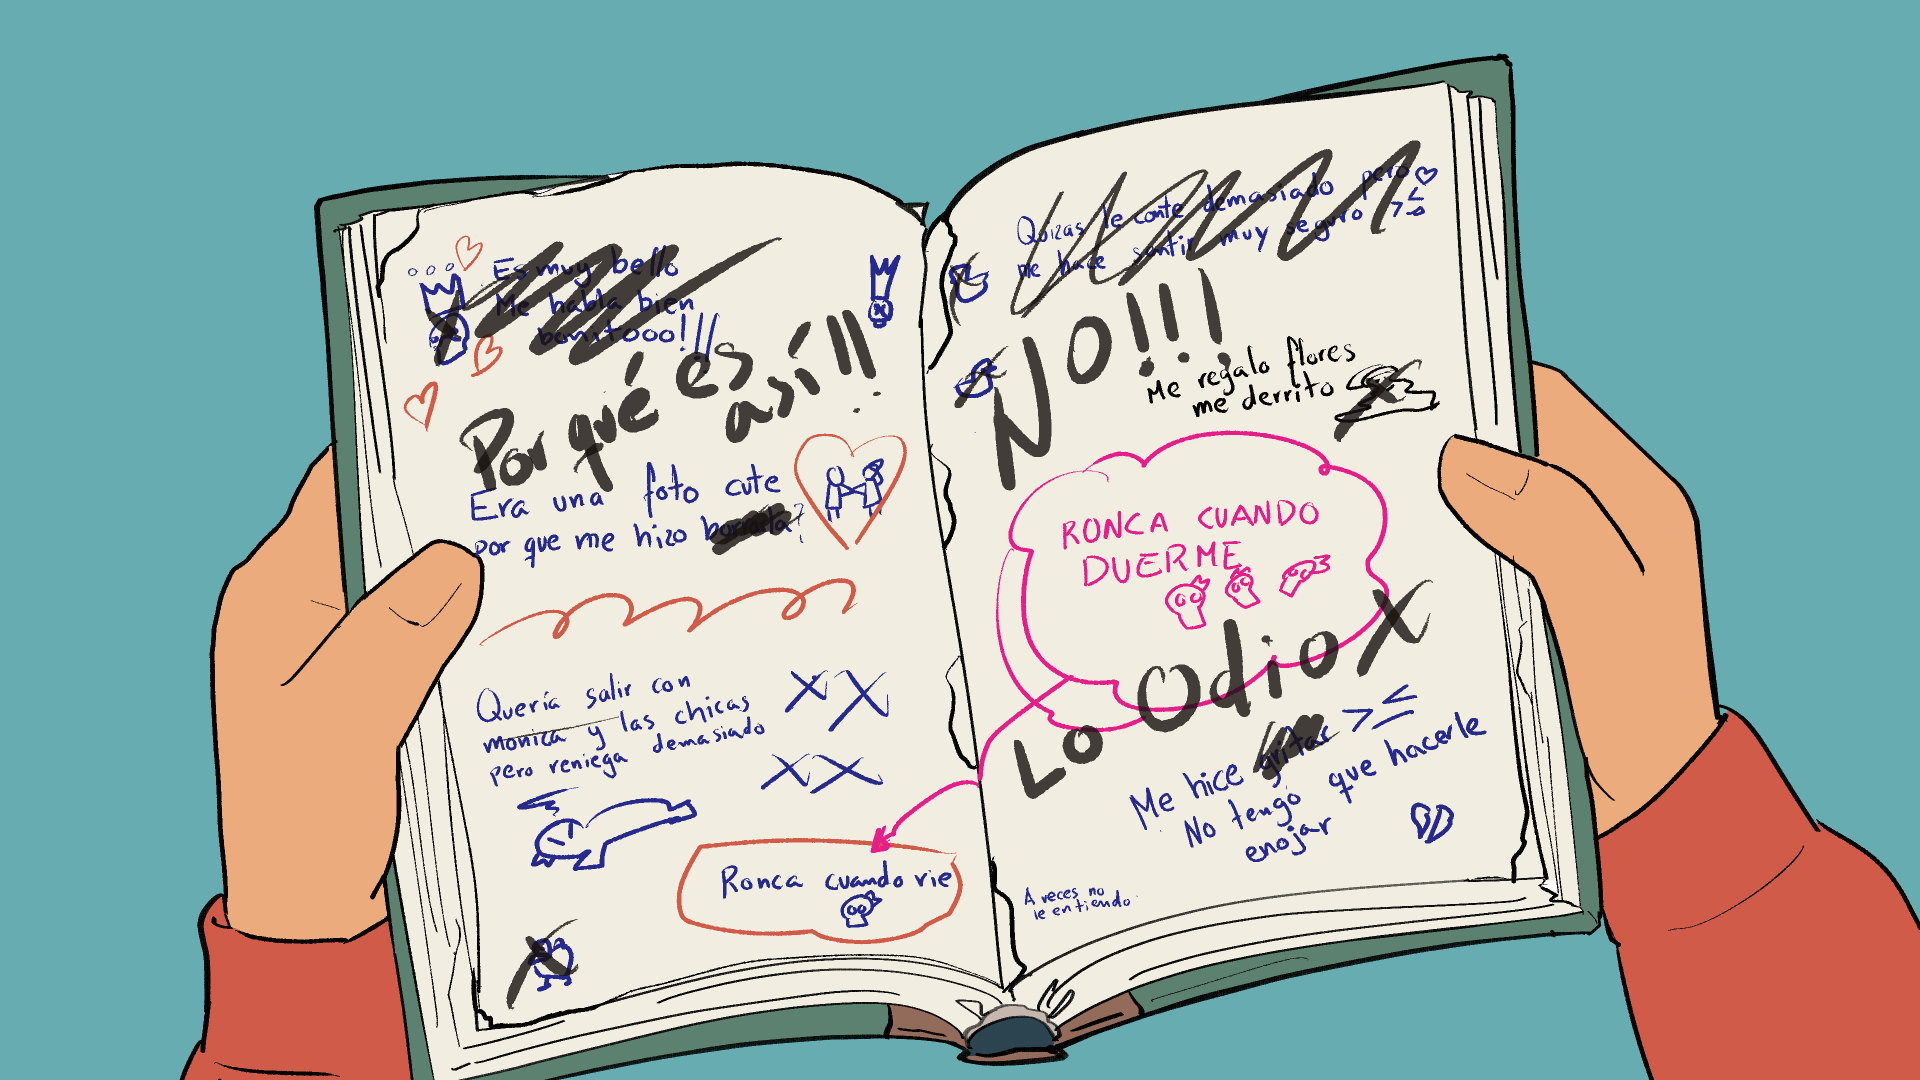 Es muy bello
Me habla bien
bonitooo!!!
Por qué es
así!!
Era una foto cute
por que me hizo borrarla?
Quería salir con
monica y las chicas
pero reniega demasiado
Ronca cuando rie
Quizas le conte demasiado pero
me hace sentir muy seguro
NO!!!
Me regalo flores
me derrito
RONCA CUANDO
DUERME
Lo Odio X
Me hice gritar
No tengo que hacerle
enojar
A veces no
le entiendo